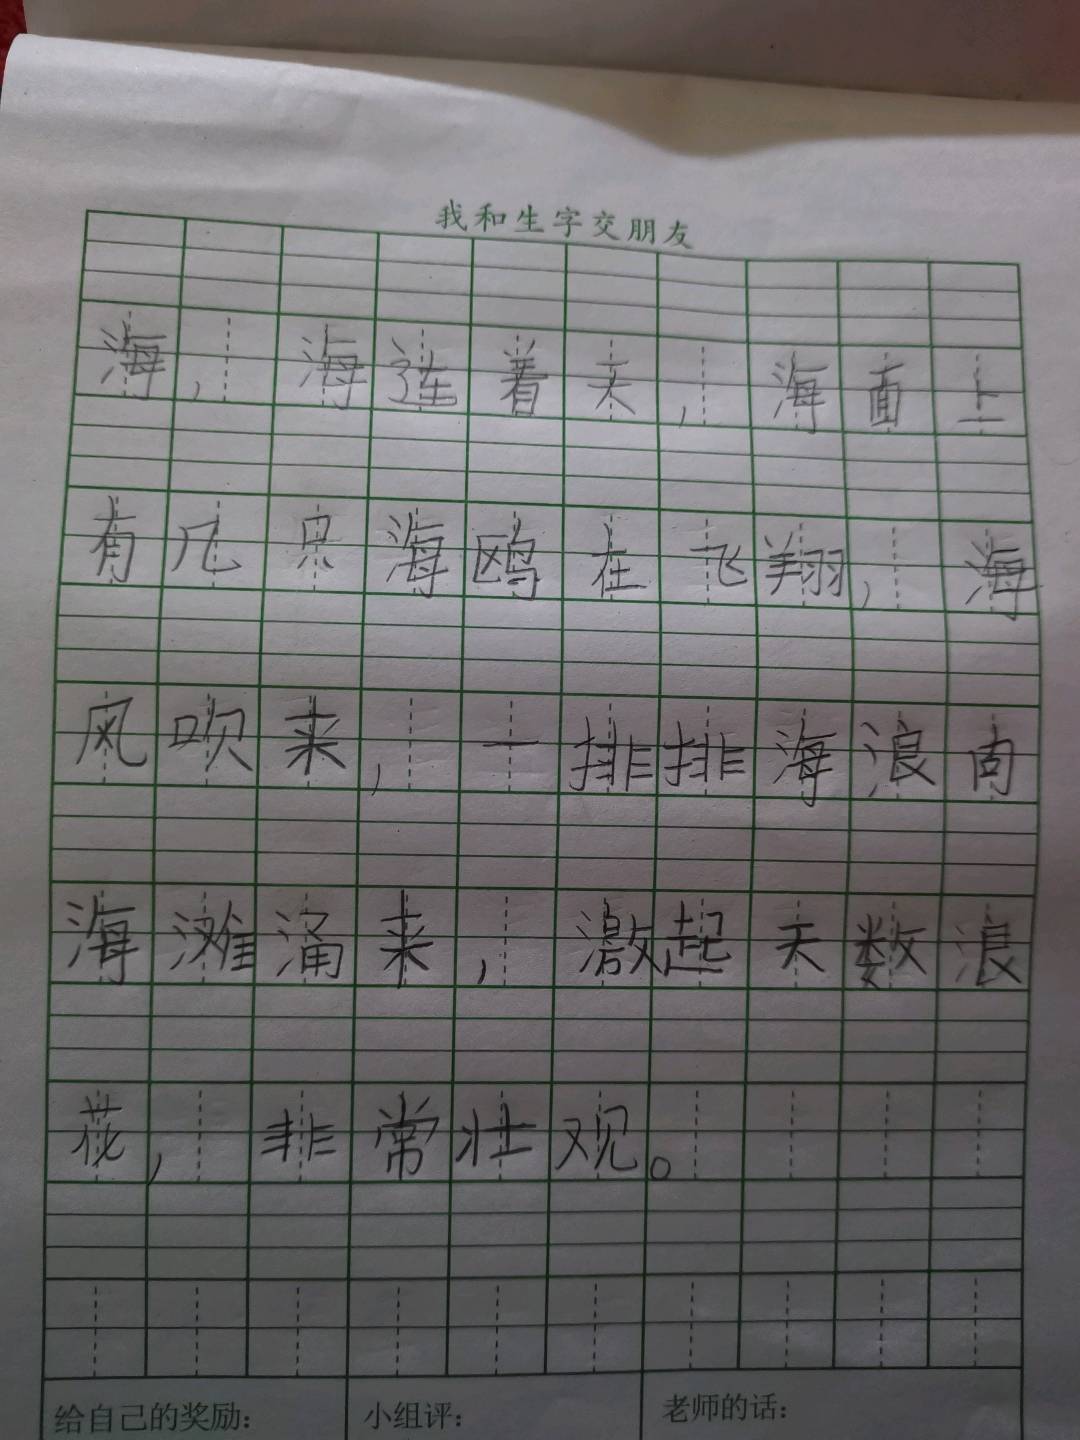 我和生字交朋友
海，海连着天，海面上
有几只海鸥在飞翔，海
风吹来，一排排海浪向
海滩涌来，激起天数浪
花，非常壮观。
给自己的奖励： 小组评： 老师的话：